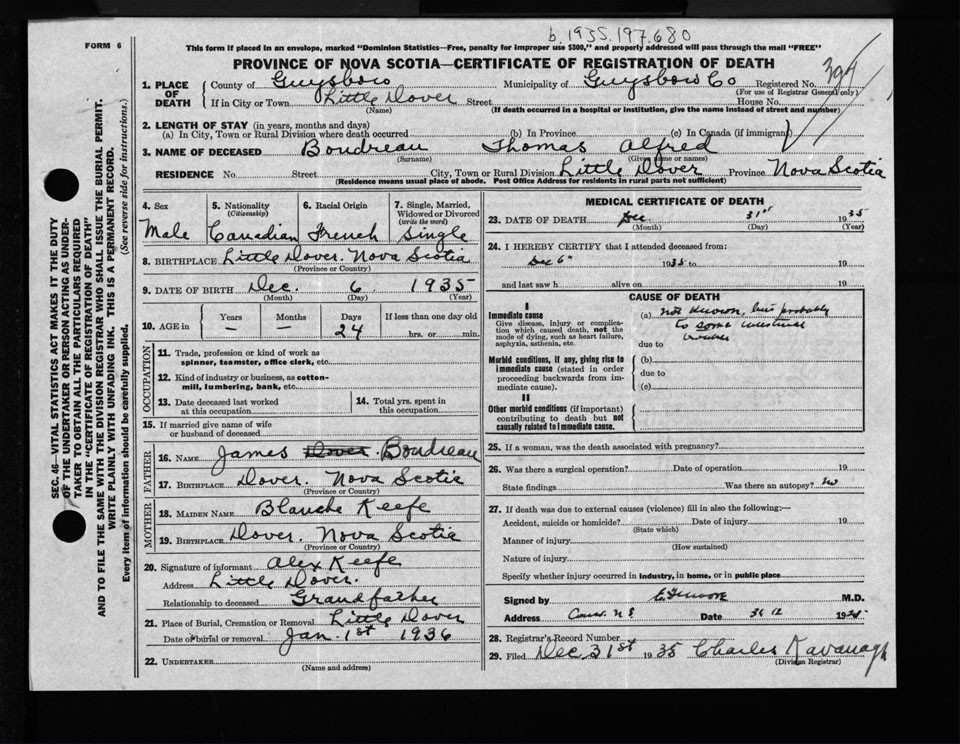 b. 1935.197.680
FORM 6
This form if placed in an envelope, marked "Dominion Statistics—Free, penalty for improper use $300," and properly addressed will pass through the mail "FREE"
PROVINCE OF NOVA SCOTIA—CERTIFICATE OF REGISTRATION OF DEATH
SEC. 46—VITAL STATISTICS ACT MAKES IT THE DUTY
OF THE UNDERTAKER OR PERSON ACTING AS UNDER-
TAKER TO OBTAIN ALL THE PARTICULARS REQUIRED
IN THE "CERTIFICATE OF REGISTRATION OF DEATH"
AND TO FILE THE SAME WITH THE DIVISION REGISTRAR WHO SHALL ISSUE THE BURIAL PERMIT.
WRITE PLAINLY WITH UNFADING INK. THIS IS A PERMANENT RECORD.
Every item of information should be carefully supplied. (See reverse side for instructions.)
1. PLACE OF DEATH County of Guysboro Municipality of Guysboro Co Registered No.
(For use of Registrar General only)
If in City or Town Little Dover Street House No.
(Name) (If death occurred in a hospital or institution, give the name instead of street and number)
2. LENGTH OF STAY (in years, months and days)
(a) In City, Town or Rural Division where death occurred (b) In Province (c) In Canada (if immigrant)
3. NAME OF DECEASED Boudreau Thomas Alfred
(Surname) (Given name or names)
RESIDENCE No. Street City, Town or Rural Division Little Dover Province Nova Scotia
(Residence means usual place of abode. Post Office Address for residents in rural parts not sufficient)
4. Sex 5. Nationality (Citizenship) 6. Racial Origin 7. Single, Married, Widowed or Divorced (write the word)
Male Canadian French Single
8. BIRTHPLACE Little Dover. Nova Scotia
(Province or Country)
9. DATE OF BIRTH Dec. 6 1935
(Month) (Day) (Year)
10. AGE in Years Months Days If less than one day old
— — 24 hrs. or min.
OCCUPATION
11. Trade, profession or kind of work as
spinner, teamster, office clerk, etc.
12. Kind of industry or business, as cotton-
mill, lumbering, bank, etc.
13. Date deceased last worked at this occupation 14. Total yrs. spent in this occupation
15. If married give name of wife
or husband of deceased
FATHER
16. NAME James Dover Boudreau
17. BIRTHPLACE Dover. Nova Scotia
(Province or Country)
MOTHER
18. MAIDEN NAME Blanche Keefe
19. BIRTHPLACE Dover. Nova Scotia
(Province or Country)
20. Signature of informant Alex Keefe
Address Little Dover.
Relationship to deceased Grandfather
21. Place of Burial, Cremation or Removal Little Dover
Date of burial or removal Jan. 1st 1936
22. UNDERTAKER
(Name and address)
MEDICAL CERTIFICATE OF DEATH
23. DATE OF DEATH Dec 31st 1935
(Month) (Day) (Year)
24. I HEREBY CERTIFY that I attended deceased from:
Dec 6th 1935 to 19
and last saw h alive on 19
CAUSE OF DEATH
I
Immediate cause
Give disease, injury or complica-
tion which caused death, not the
mode of dying, such as heart failure,
asphyxia, asthenia, etc.
(a) not known, but probably
to some intestinal
due to
Morbid conditions, if any, giving rise to
immediate cause (stated in order
proceeding backwards from im-
mediate cause).
(b)
due to
(c)
II
Other morbid conditions (if important)
contributing to death but not
causally related to immediate cause.
25. If a woman, was the death associated with pregnancy?
26. Was there a surgical operation? Date of operation 19
State findings Was there an autopsy? no
27. If death was due to external causes (violence) fill in also the following:—
Accident, suicide or homicide? Date of injury 19
(State which)
Manner of injury
(How sustained)
Nature of injury
Specify whether injury occurred in industry, in home, or in public place
Signed by M.D.
Address Canso N S Date 1935
28. Registrar's Record Number
29. Filed Dec 31st 1935 Charles Kavanagh
(Division Registrar)